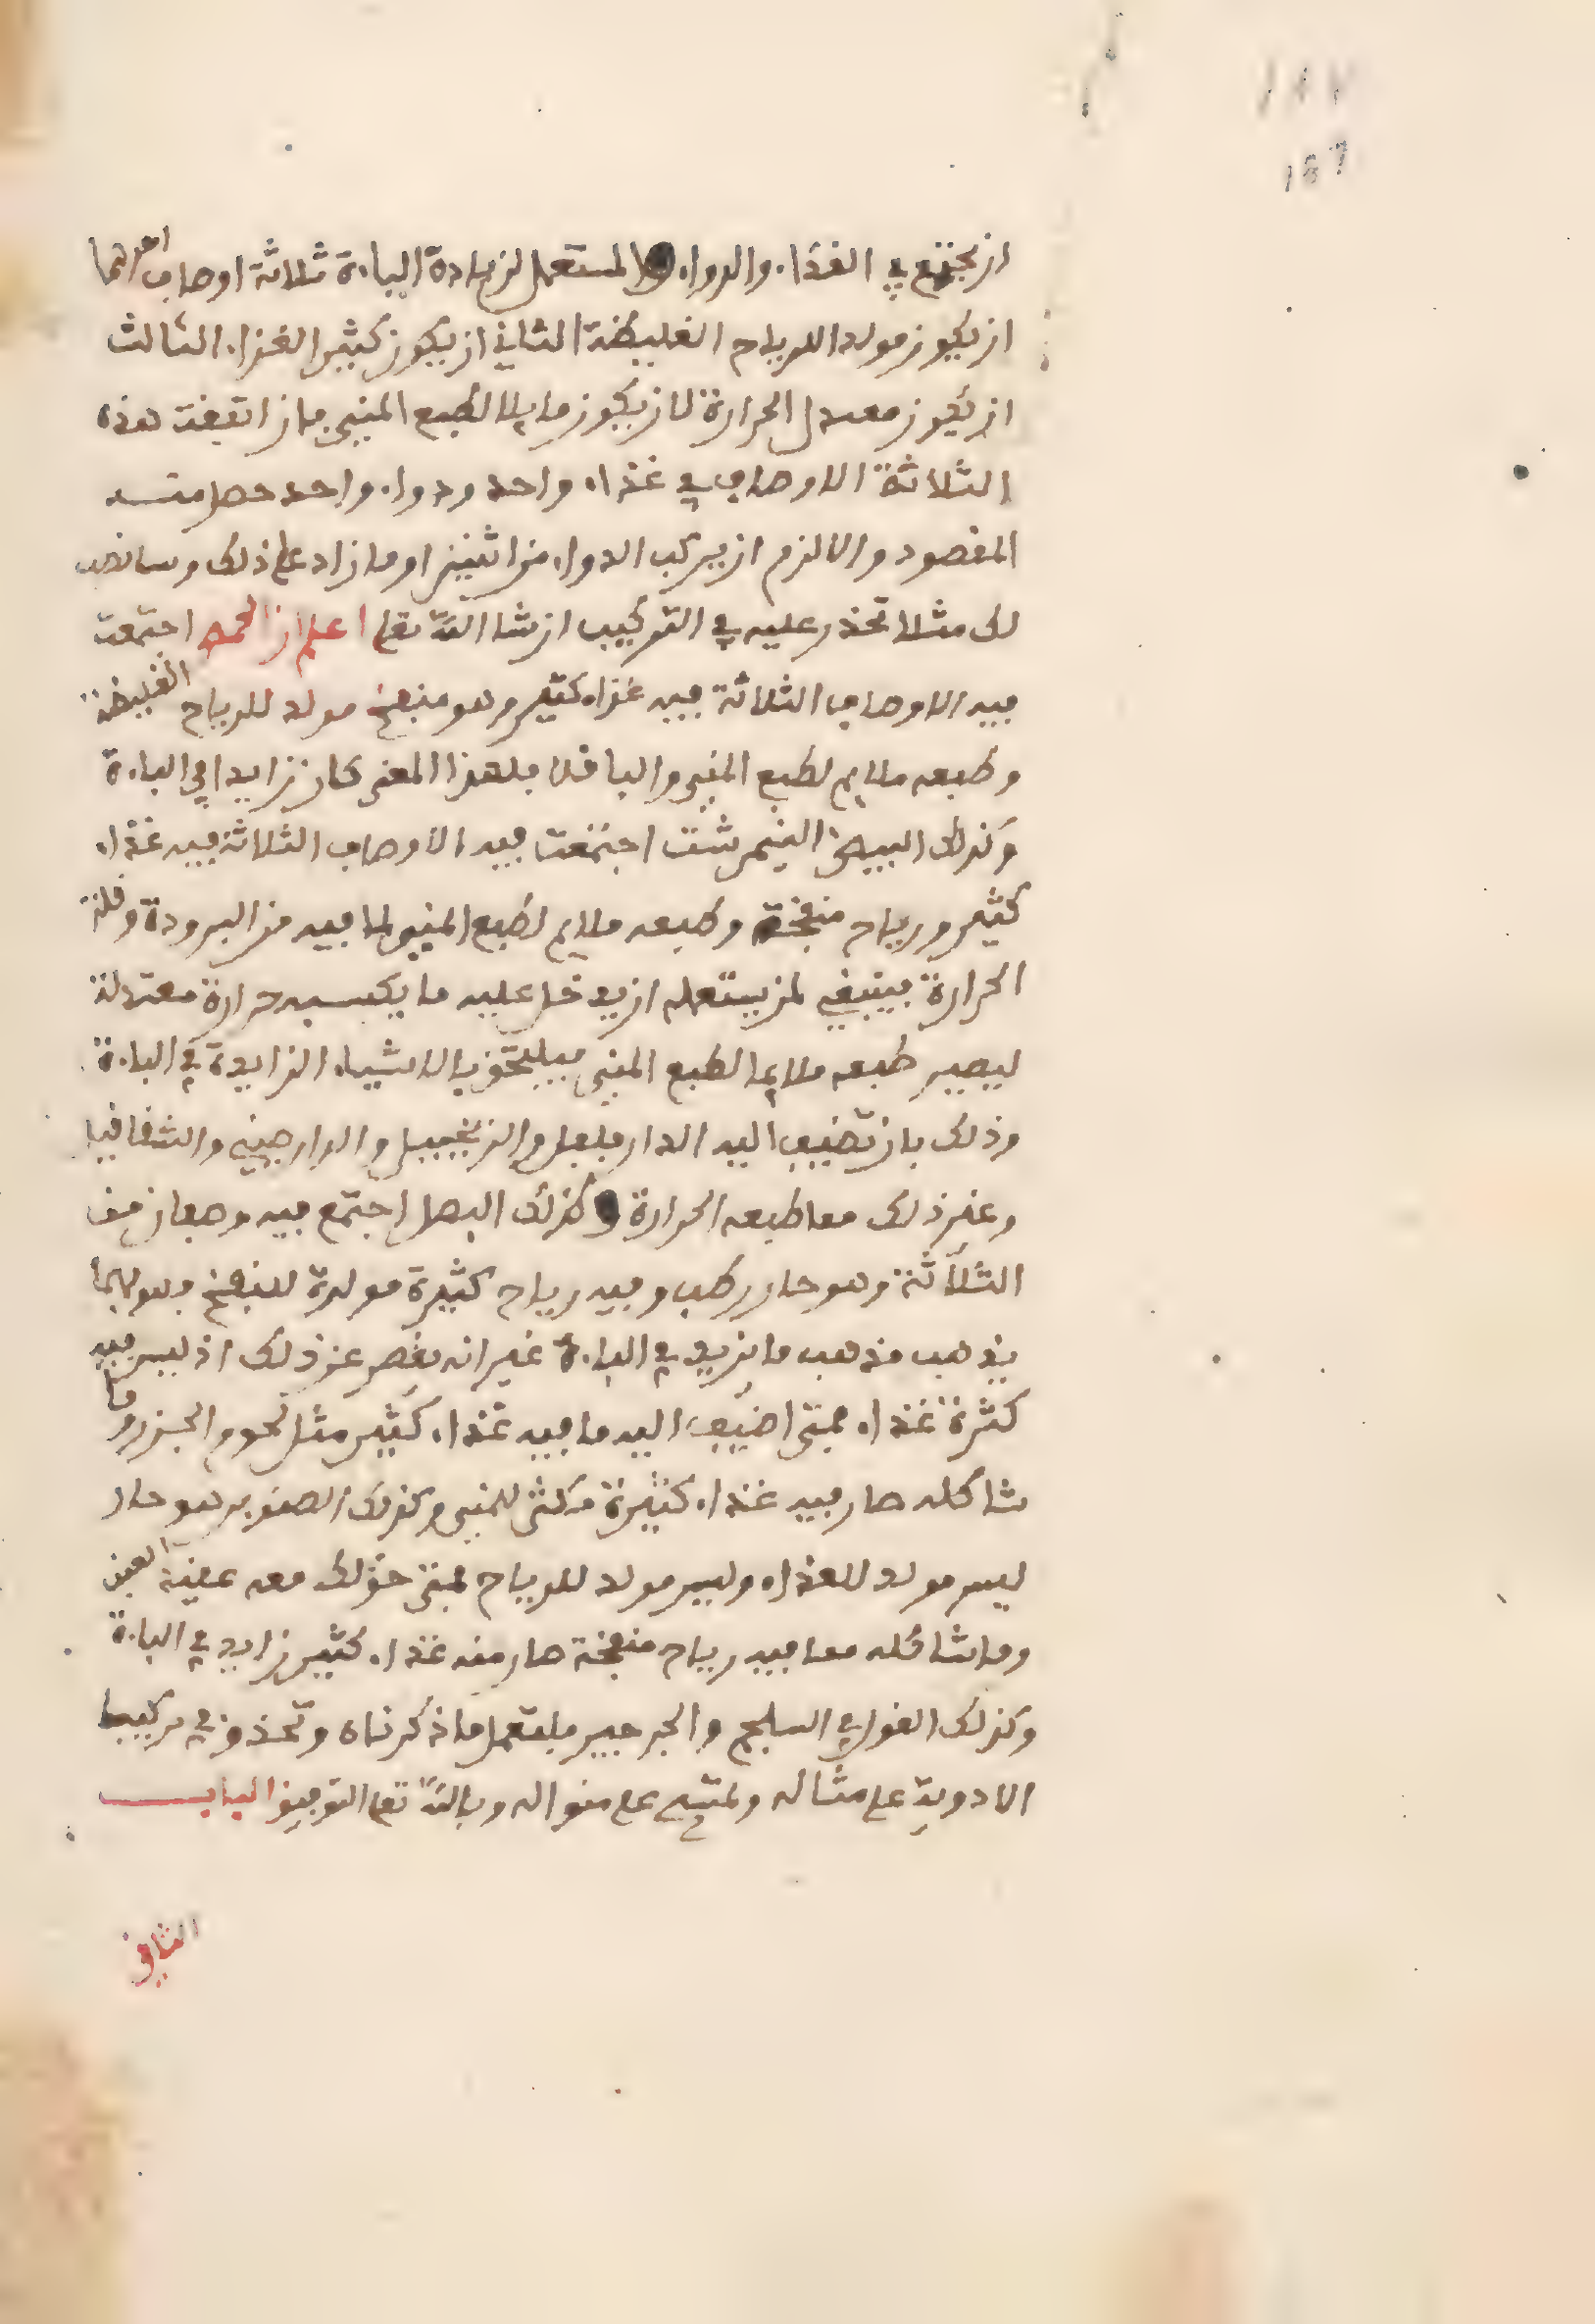 ١٨٧
187
ان يجتمع في الغذاء والدواء المستعمل لزيادة الباءة ثلاثة اوصاف احدها
ان يكون مولدا للرياح الغليظة الثاني ان يكون كثير الغذاء الثالث
ان يكون معتدل الحرارة لان يكون مايلا لطبع المني فان اتفقت هذه
الثلاثة الاوصاف في غذاء واحد ودواء واحد حصل منه
المقصود والا لزم ان يركب الدواء من اثنين او ما زاد على ذلك وسانصب
لك مثلا تحذو عليه في التركيب ان شا الله تعلى اعلم ان الحمص اجتمعت
فيه الاوصاف الثلاثة فيه غذاء كثير وهو منفخ مولد للرياح الغليظة
وطبعه ملايم لطبع المني والباقلا فلهذا المعنى كان زايدا في الباءة
وكذلك البيض النيمرشت اجتمعت فيه الاوصاف الثلاثة فيه غذاء
كثير ورياح منفخة وطبعه ملايم لطبع المني ولما فيه من البرودة وقلة
الحرارة فينبغي لمن يستعمله ان يدخل عليه ما يكسبه حرارة معتدلة
ليصير طبعه ملايما لطبع المني فيلتحق بالاشياء الزايدة في الباءة
وذلك بان تضيف اليه الدارفلفل والزنجبيل والدارصيني والشقاقيا
وغير ذلك مما طبعه الحرارة وكذلك البصل اجتمع فيه وصفان من
الثلاثة وهو حار رطب وفيه رياح كثيرة مولدة للنفخ فهو بهما
يذهب مذهب ما يزيد في الباءة غير انه يقصر عن ذلك اذ ليس فيه
كثرة غذاء فمتى اضيف اليه ما فيه غذاء كثير مثل لحوم الجزر وما
شاكله صار فيه غذاء كثيرة مكثر للمني وكذلك الصنوبر هو حار
ليس مولد للغذاء وليس مولد للرياح فمتى خولط معه عقيد العنب
وما شاكله مما فيه رياح منفخة صار منه غذاء كثير زايد في الباءة
وكذلك القول في السلجم والجرجير فلتعمل ما ذكرناه وتحذو في تركيب
الادوية على مثاله ولتمش على منواله وبالله تعلى التوفيق الباب
الثاني